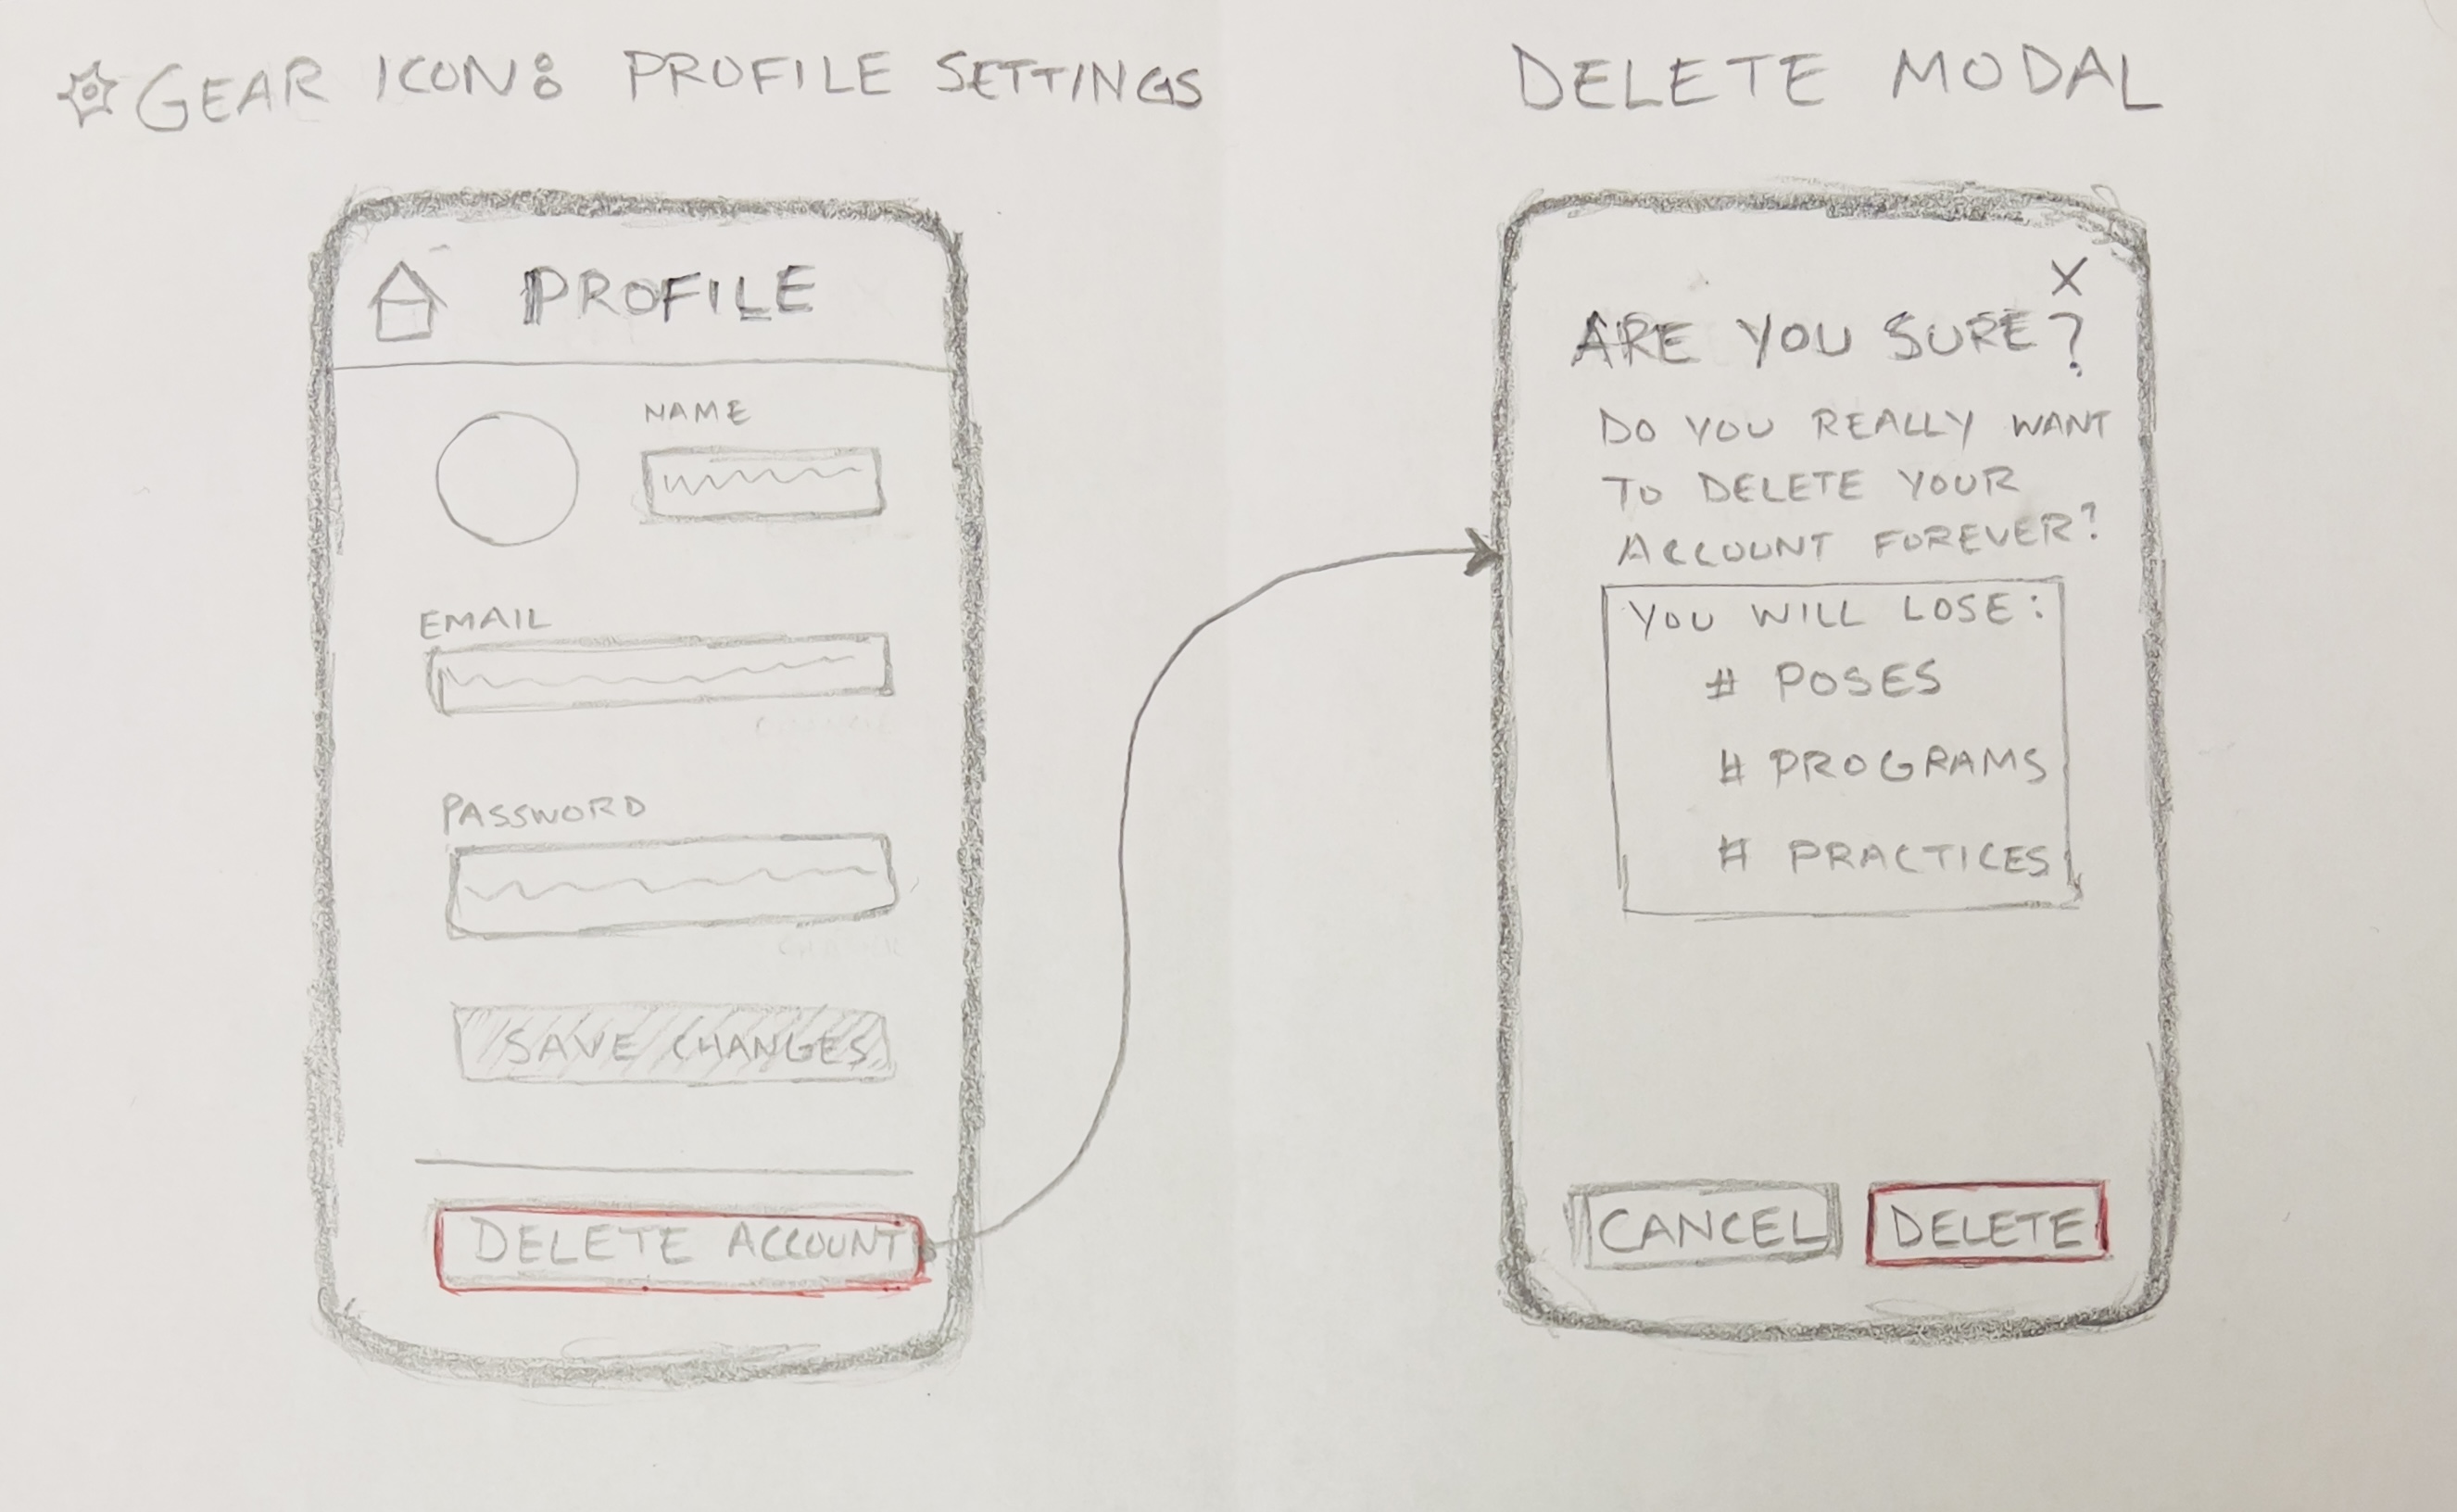 GEAR ICON: PROFILE SETTINGS
PROFILE
NAME
EMAIL
PASSWORD
SAVE CHANGES
DELETE ACCOUNT
DELETE MODAL
X
ARE YOU SURE?
DO YOU REALLY WANT
TO DELETE YOUR
ACCOUNT FOREVER?
YOU WILL LOSE:
# POSES
# PROGRAMS
# PRACTICES
CANCEL
DELETE